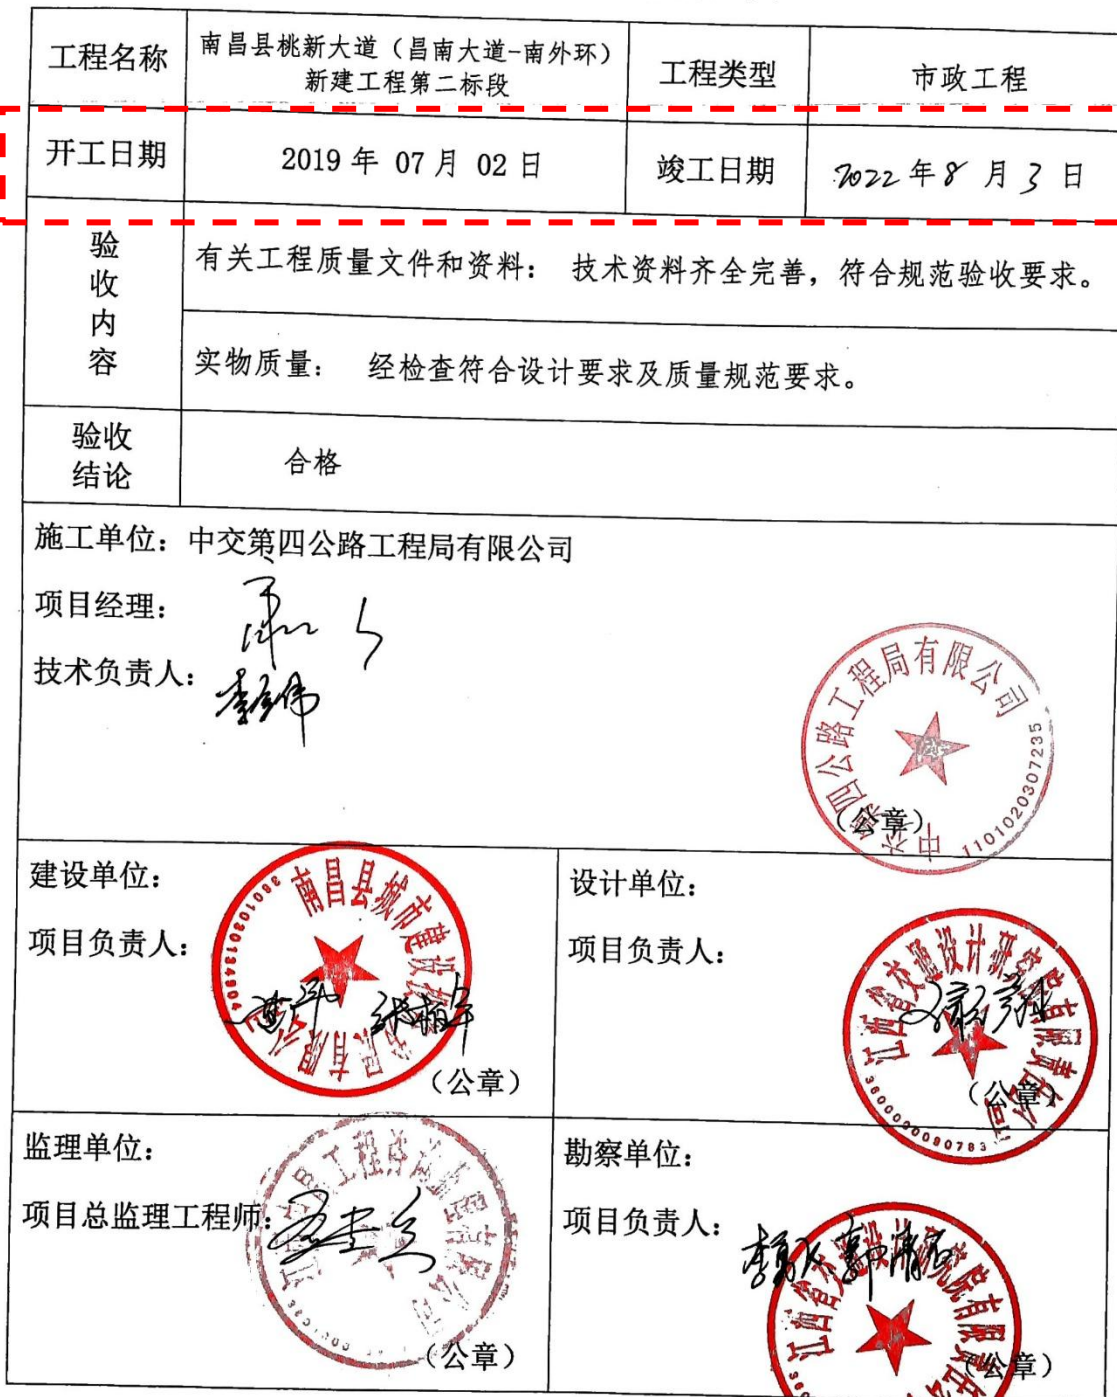 工程名称
南昌县桃新大道（昌南大道-南外环）
新建工程第二标段
工程类型
市政工程
开工日期
2019 年 07 月 02 日
竣工日期
2022 年 8 月 3 日
验收内容
有关工程质量文件和资料： 技术资料齐全完善，符合规范验收要求。
实物质量： 经检查符合设计要求及质量规范要求。
验收
结论
合格
施工单位：中交第四公路工程局有限公司
项目经理：
技术负责人：
中交第四公路工程局有限公司
1101020307235
（公章）
建设单位：
项目负责人：
南昌县城市建设投资
有限公司
（公章）
设计单位：
项目负责人：
江西省交通设计研究院有限责任公司
3600000080783
（公章）
监理单位：
项目总监理工程师：
（公章）
勘察单位：
项目负责人：
江西省交通设计研究院有限责任公
（公章）